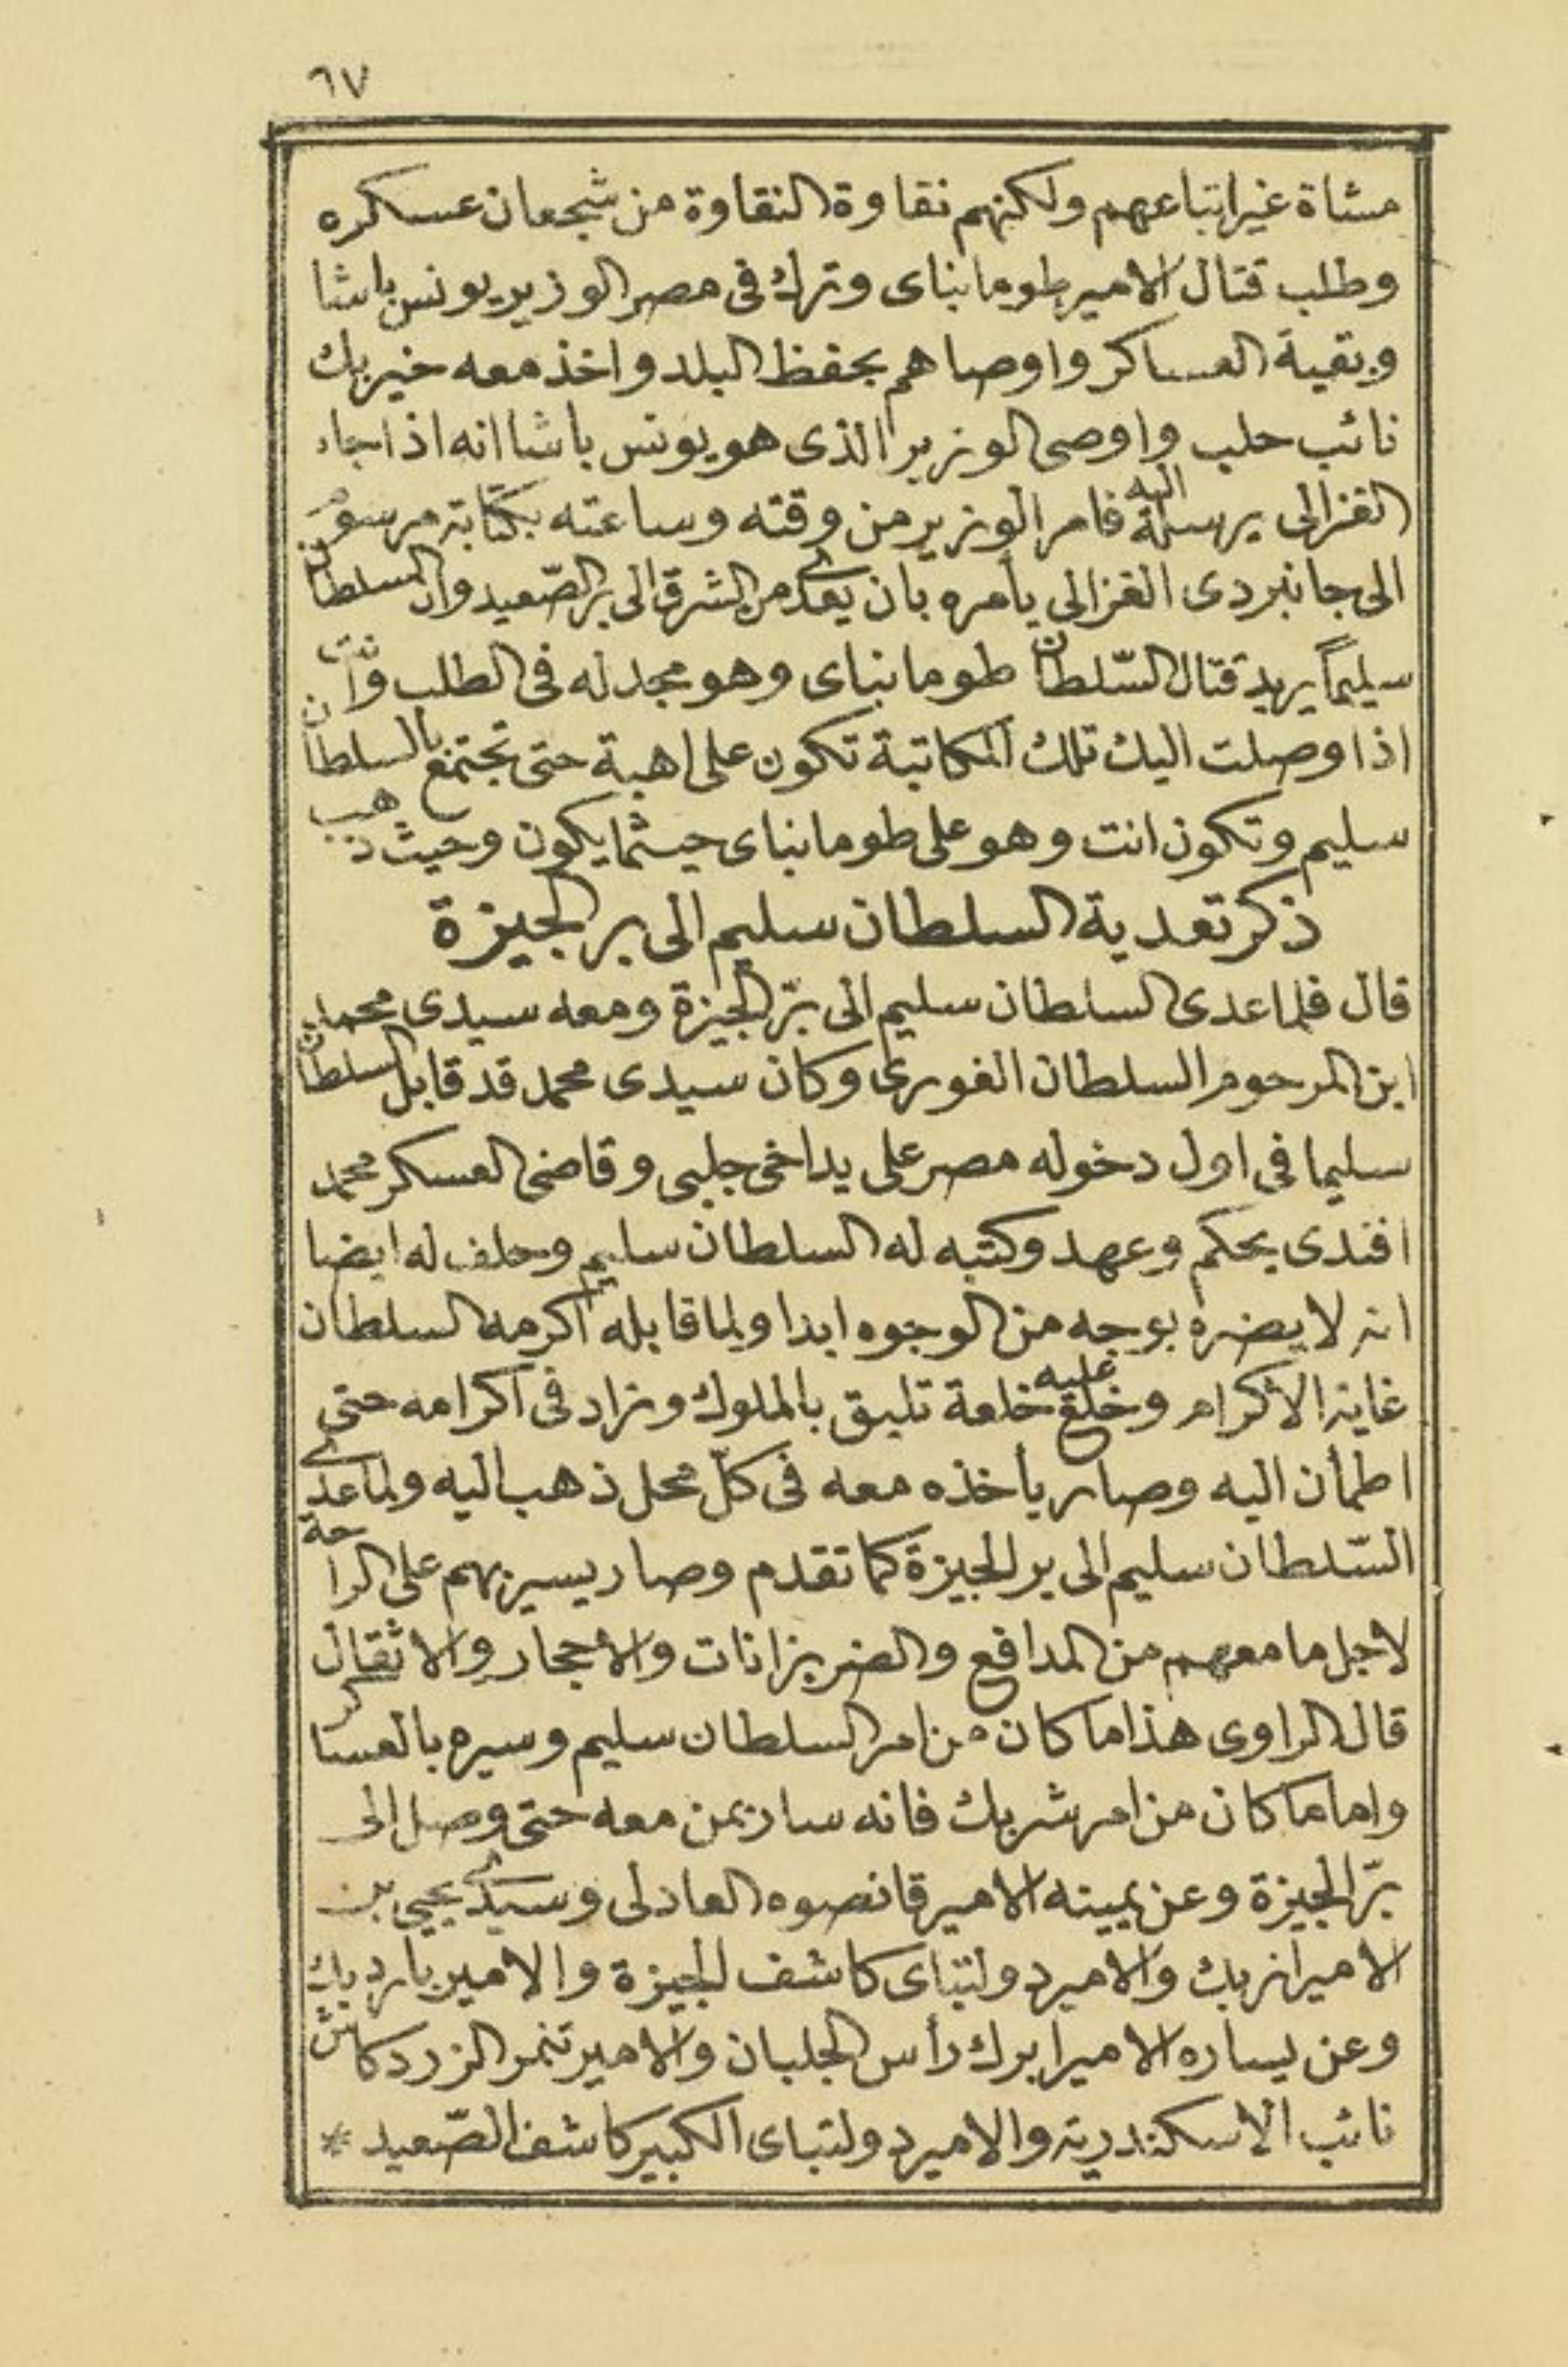 ٦٧
مشاة غير اتباعهم ولكنهم نقاوة النقاوة من شجعان عسكره
وطلب قتال الامير طومانباى وترك فى مصر الوزير يونس باشا
وبقية العساكر واوصاهم بحفظ البلد واخذ معه خير بك
نائب حلب واوصى الوزير الذى هو يونس باشا انه اذا جاء
الغزالى يرسله اليه فامر الوزير من وقته وساعته بكتابة مرسوم
الى جانبردى الغزالى يأمره بان يعدى من الشرق الى بر الصّعيد وان السلطان
سليماً يريد قتال السّلطان طومانباى وهو مجد له فى الطلب وانت
اذا وصلت اليك تلك المكاتبة تكون على اهبة حتى تجتمع بالسلطان
سليم وتكون انت وهو على طومانباى حيثما يكون وحيث ذهب
ذكر تعدية السلطان سليم الى بر الجيزة
قال فلما عدى السلطان سليم الى برّ الجيزة ومعه سيدى محمد
ابن المرحوم السلطان الغورى وكان سيدى محمد قد قابل السلطان
سليما فى اول دخوله مصر على يد اخى جلبى وقاضى العسكر محمد
افندى بحكم وعهد وكتبه له السلطان سليم وحلف له ايضا
انه لا يضره بوجه من الوجوه ابدا ولما قابله اكرمه السلطان
غاية الاكرام وخلع عليه خلعة تليق بالملوك وزاد فى اكرامه حتى
اطمأن اليه وصار يأخذه معه فى كلّ محل ذهب اليه ولما عدى
السّلطان سليم الى بر الجيزة كما تقدم وصار يسير بهم على الراحة
لاجل ما معهم من المدافع والضربزانات والاحجار والاثقال
قال الراوى هذا ما كان من امر السلطان سليم وسيره بالعساكر
واما ما كان من امر شربك فانه سار بمن معه حتى وصل الى
برّ الجيزة وعن يمينه الامير قانصوه العادلى وسيدى يحيى بن
الامير ازبك والامير دولتباى كاشف الجيزة والامير بارد بك
وعن يساره الامير ابرك رأس الجلبان والامير تنمر الزردكاش
نائب الاسكندرية والامير دولتباى الكبير كاشف الصّعيد *